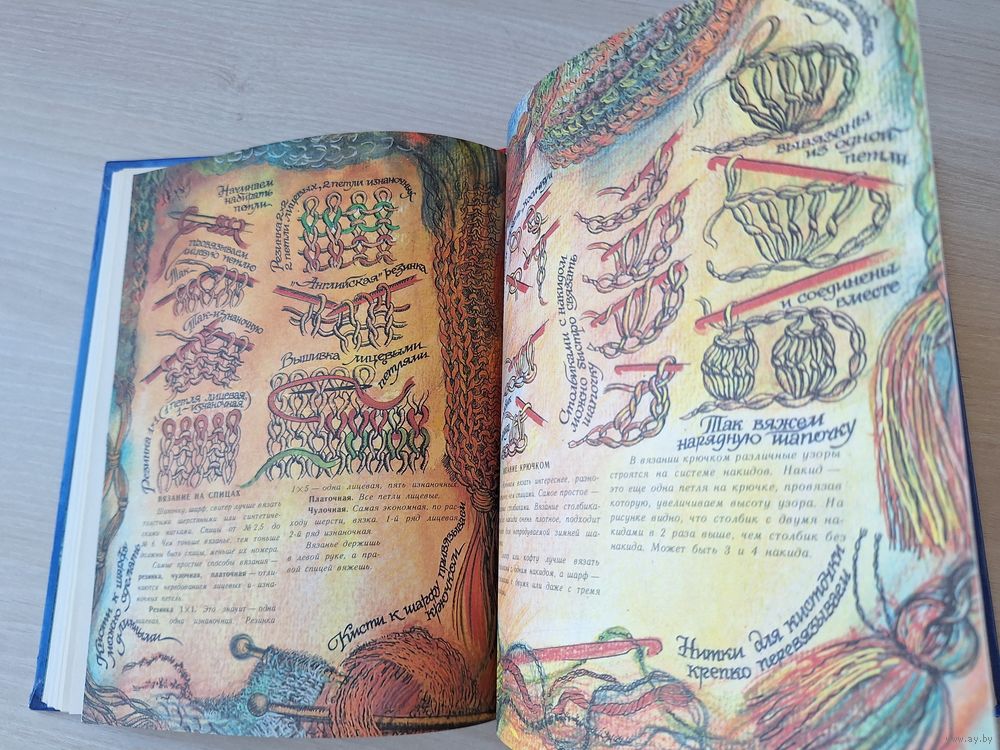 Начинаем
набирать
петли
провязываем
лицевую петлю
Так-
Так-изнаночную
1 петля лицевая,
1-изнаночная
Резинка 1×1
Резинка 2×2
2 петли лицевых, 2 петли изнаночных
"Английская" резинка
Вышивка лицевыми
петлями
ВЯЗАНИЕ НА СПИЦАХ
Шапочку, шарф, свитер лучше вязать
толстыми шерстяными или синтетиче-
скими нитками. Спицы от № 2,5 до
№ 6. Чем тоньше вязанье, тем тоньше
должны быть спицы, меньше их номера.
Самые простые способы вязания —
резинка, чулочная, платочная — отли-
чаются чередованием лицевых и изна-
ночных петель.
Резинка 1×1. Это значит — одна
лицевая, одна изнаночная. Резинка
1×5 — одна лицевая, пять изнаночных
Платочная. Все петли лицевые.
Чулочная. Самая экономная, по рас-
ходу шерсти, вязка. 1-й ряд лицевая
2-й ряд изнаночная.
Вязанье держишь
в левой руке, а пра-
вой спицей вяжешь.
Кисти к шарфу
можно
Кисти к шарфу привязываем
крючком
вывязаны
из одной
петли
и соединены
вместе
Столбиками с накидом
можно быстро связать
шапочку
Так вяжем
нарядную шапочку
КРЮЧКОМ
вязать интереснее, разно-
чем спицами. Самое простое —
столбики. Вязание столбика-
очень плотное, подходит
для непродуваемой зимней ша-
или кофту лучше вязать
с одним накидом, а шарф —
с двумя или даже с тремя
В вязании крючком различные узоры
строятся на системе накидов. Накид —
это еще одна петля на крючке, провязав
которую, увеличиваем высоту узора. На
рисунке видно, что столбик с двумя на-
кидами в 2 раза выше, чем столбик без
накида. Может быть 3 и 4 накида.
Нитки для кисточки
крепко перевязываем
www.ay.by